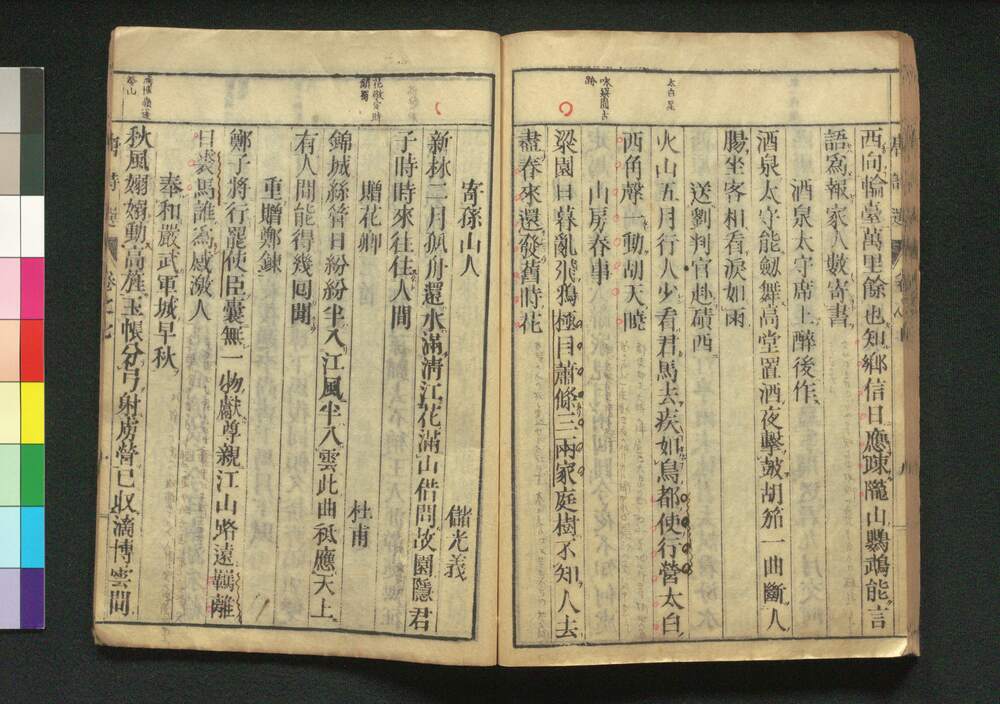 西向輪臺萬里餘也知鄉信日應疎隴山鸚鵡能言
語爲報家人數寄書
酒泉太守席上醉後作
酒泉太守能劒舞高堂置酒夜擊鼓胡笳一曲斷人
腸坐客相看淚如雨
送劉判官赴磧西
火山五月行人少看君馬去疾如鳥都使行營太白
西角聲一動胡天曉
山房春事
梁園日暮亂飛鴉極目蕭條三兩家庭樹不知人去
盡春來還發舊時花
寄孫山人
儲光羲
新林二月孤舟還水滿淸江花滿山借問故園隱君
子時時來往住人間
贈花卿
杜甫
錦城絲管日紛紛半入江風半入雲此曲祗應天上
有人間能得幾回聞
重贈鄭鍊
鄭子將行罷使臣囊無一物獻尊親江山路遠羈離
日裘馬誰爲感激人
奉和嚴武軍城早秋
秋風嫋嫋動高旌玉帳分弓射虜營已收滴博雲間
唐詩選
卷之七